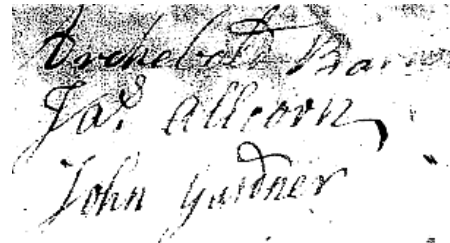 Archebeld Bar
Jas. Allcorn,
John Gardner